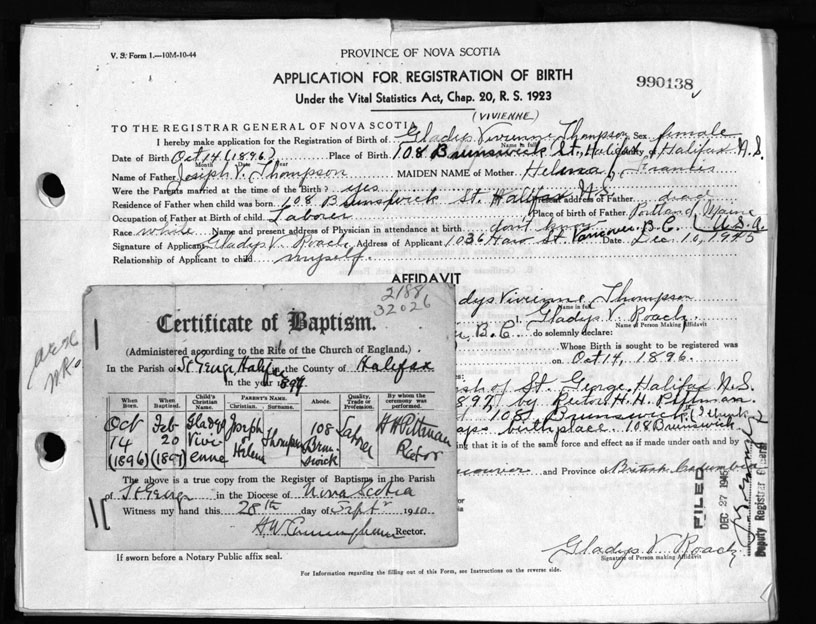 V. S. Form 1.—10M-10-44
PROVINCE OF NOVA SCOTIA
APPLICATION FOR REGISTRATION OF BIRTH
990138
Under the Vital Statistics Act, Chap. 20, R. S. 1923
(VIVIENNE)
TO THE REGISTRAR GENERAL OF NOVA SCOTIA
I hereby make application for the Registration of Birth of Gladys Vivienne Thompson Sex female
Name in full
Date of Birth Oct 14 (1896) Place of Birth 108 Brunswick St, Halifax of Halifax N.S.
Month Date Year
Name of Father Joseph V. Thompson MAIDEN NAME of Mother Francis
Were the Parents married at the time of the Birth? yes
Residence of Father when child was born 108 Brunswick St. Halifax N.S. address of Father dead
Occupation of Father at Birth of child Laborer Place of birth of Father Portland, Maine
Race white Name and present address of Physician in attendance at birth don't know (U.S.A.
Signature of Applicant Gladys V. Roach Address of Applicant 1036 Haro St. Vancouver. B.C. Date Dec 10, 1945
Relationship of Applicant to child myself.
AFFIDAVIT
dys Vivienne Thompson
Name in full
Gladys V. Roach
Name of Person Making Affidavit
B.C. do solemnly declare:
Whose Birth is sought to be registered was
on Oct 14, 1896.
sh of St. George, Halifax N.S.
1897, by Rector H. H. Pittman.
108 Brunswick St
birthplace 108 Brunswick.
ing that it is of the same force and effect as if made under oath and by
and Province of British Columbia
2188
32026
Certificate of Baptism.
(Administered according to the Rite of the Church of England.)
In the Parish of St George, Halifax in the County of Halifax
in the year 1897
When Born. When Baptised. Child's Christian Name. PARENT'S NAME. Christian. Surname. Abode. Quality, Trade or Profession. By whom the ceremony was performed.
Oct 14 (1896) Feb 20 (1897) Gladys Vivienne Joseph & Helena Thompson 108 Brunswick Laborer H H Pittman Rector
The above is a true copy from the Register of Baptisms in the Parish
of St George in the Diocese of Nova Scotia
Witness my hand this 28th day of Sept 1910
H W Cunningham Rector.
FILED
DEC 27 1945
Deputy Registrar General
Gladys V. Roach
Signature of Person making Affidavit
If sworn before a Notary Public affix seal.
For Information regarding the filling out of this Form, see Instructions on the reverse side.